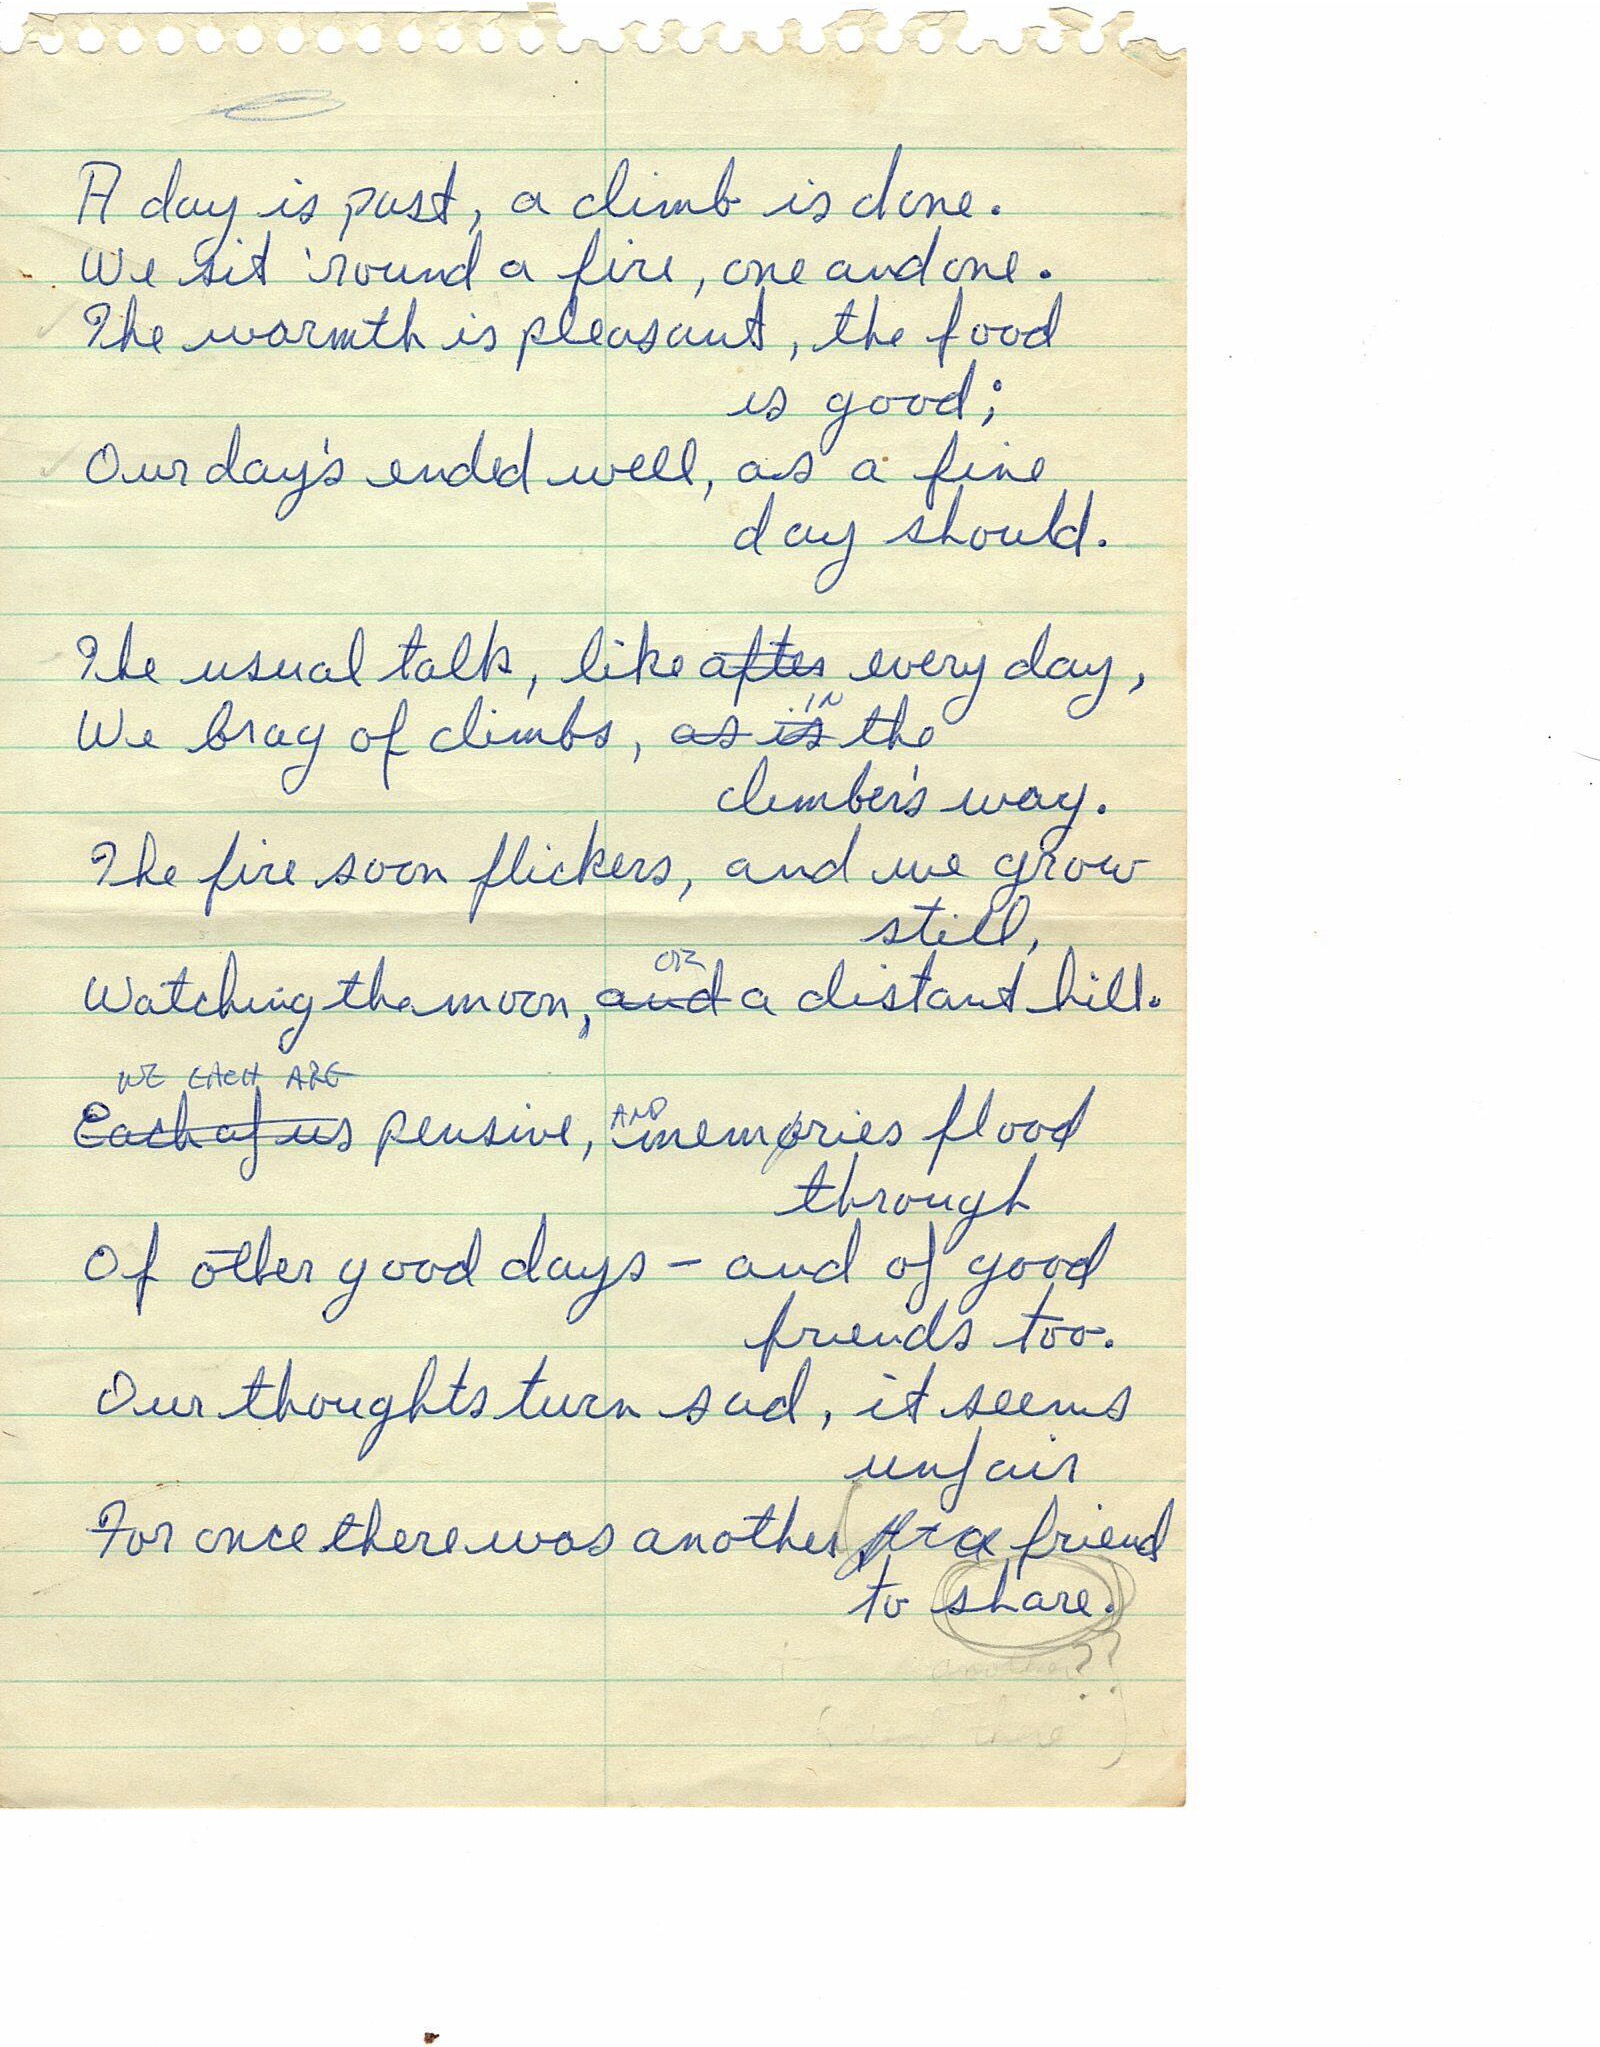 A day is past, a climb is done.
We sit 'round a fire, one and one.
The warmth is pleasant, the food
is good;
Our day's ended well, as a fine
day should.
The usual talk, like after every day,
IN
We brag of climbs, as is the
climber's way.
The fire soon flickers, and we grow
still,
OR
Watching the moon, and a distant hill.
WE EACH ARE
Each of us pensive, AND memories flood
through
Of other good days - and of good
friends too.
Our thoughts turn sad, it seems
unfair
For once there was another friend
to share.
another??